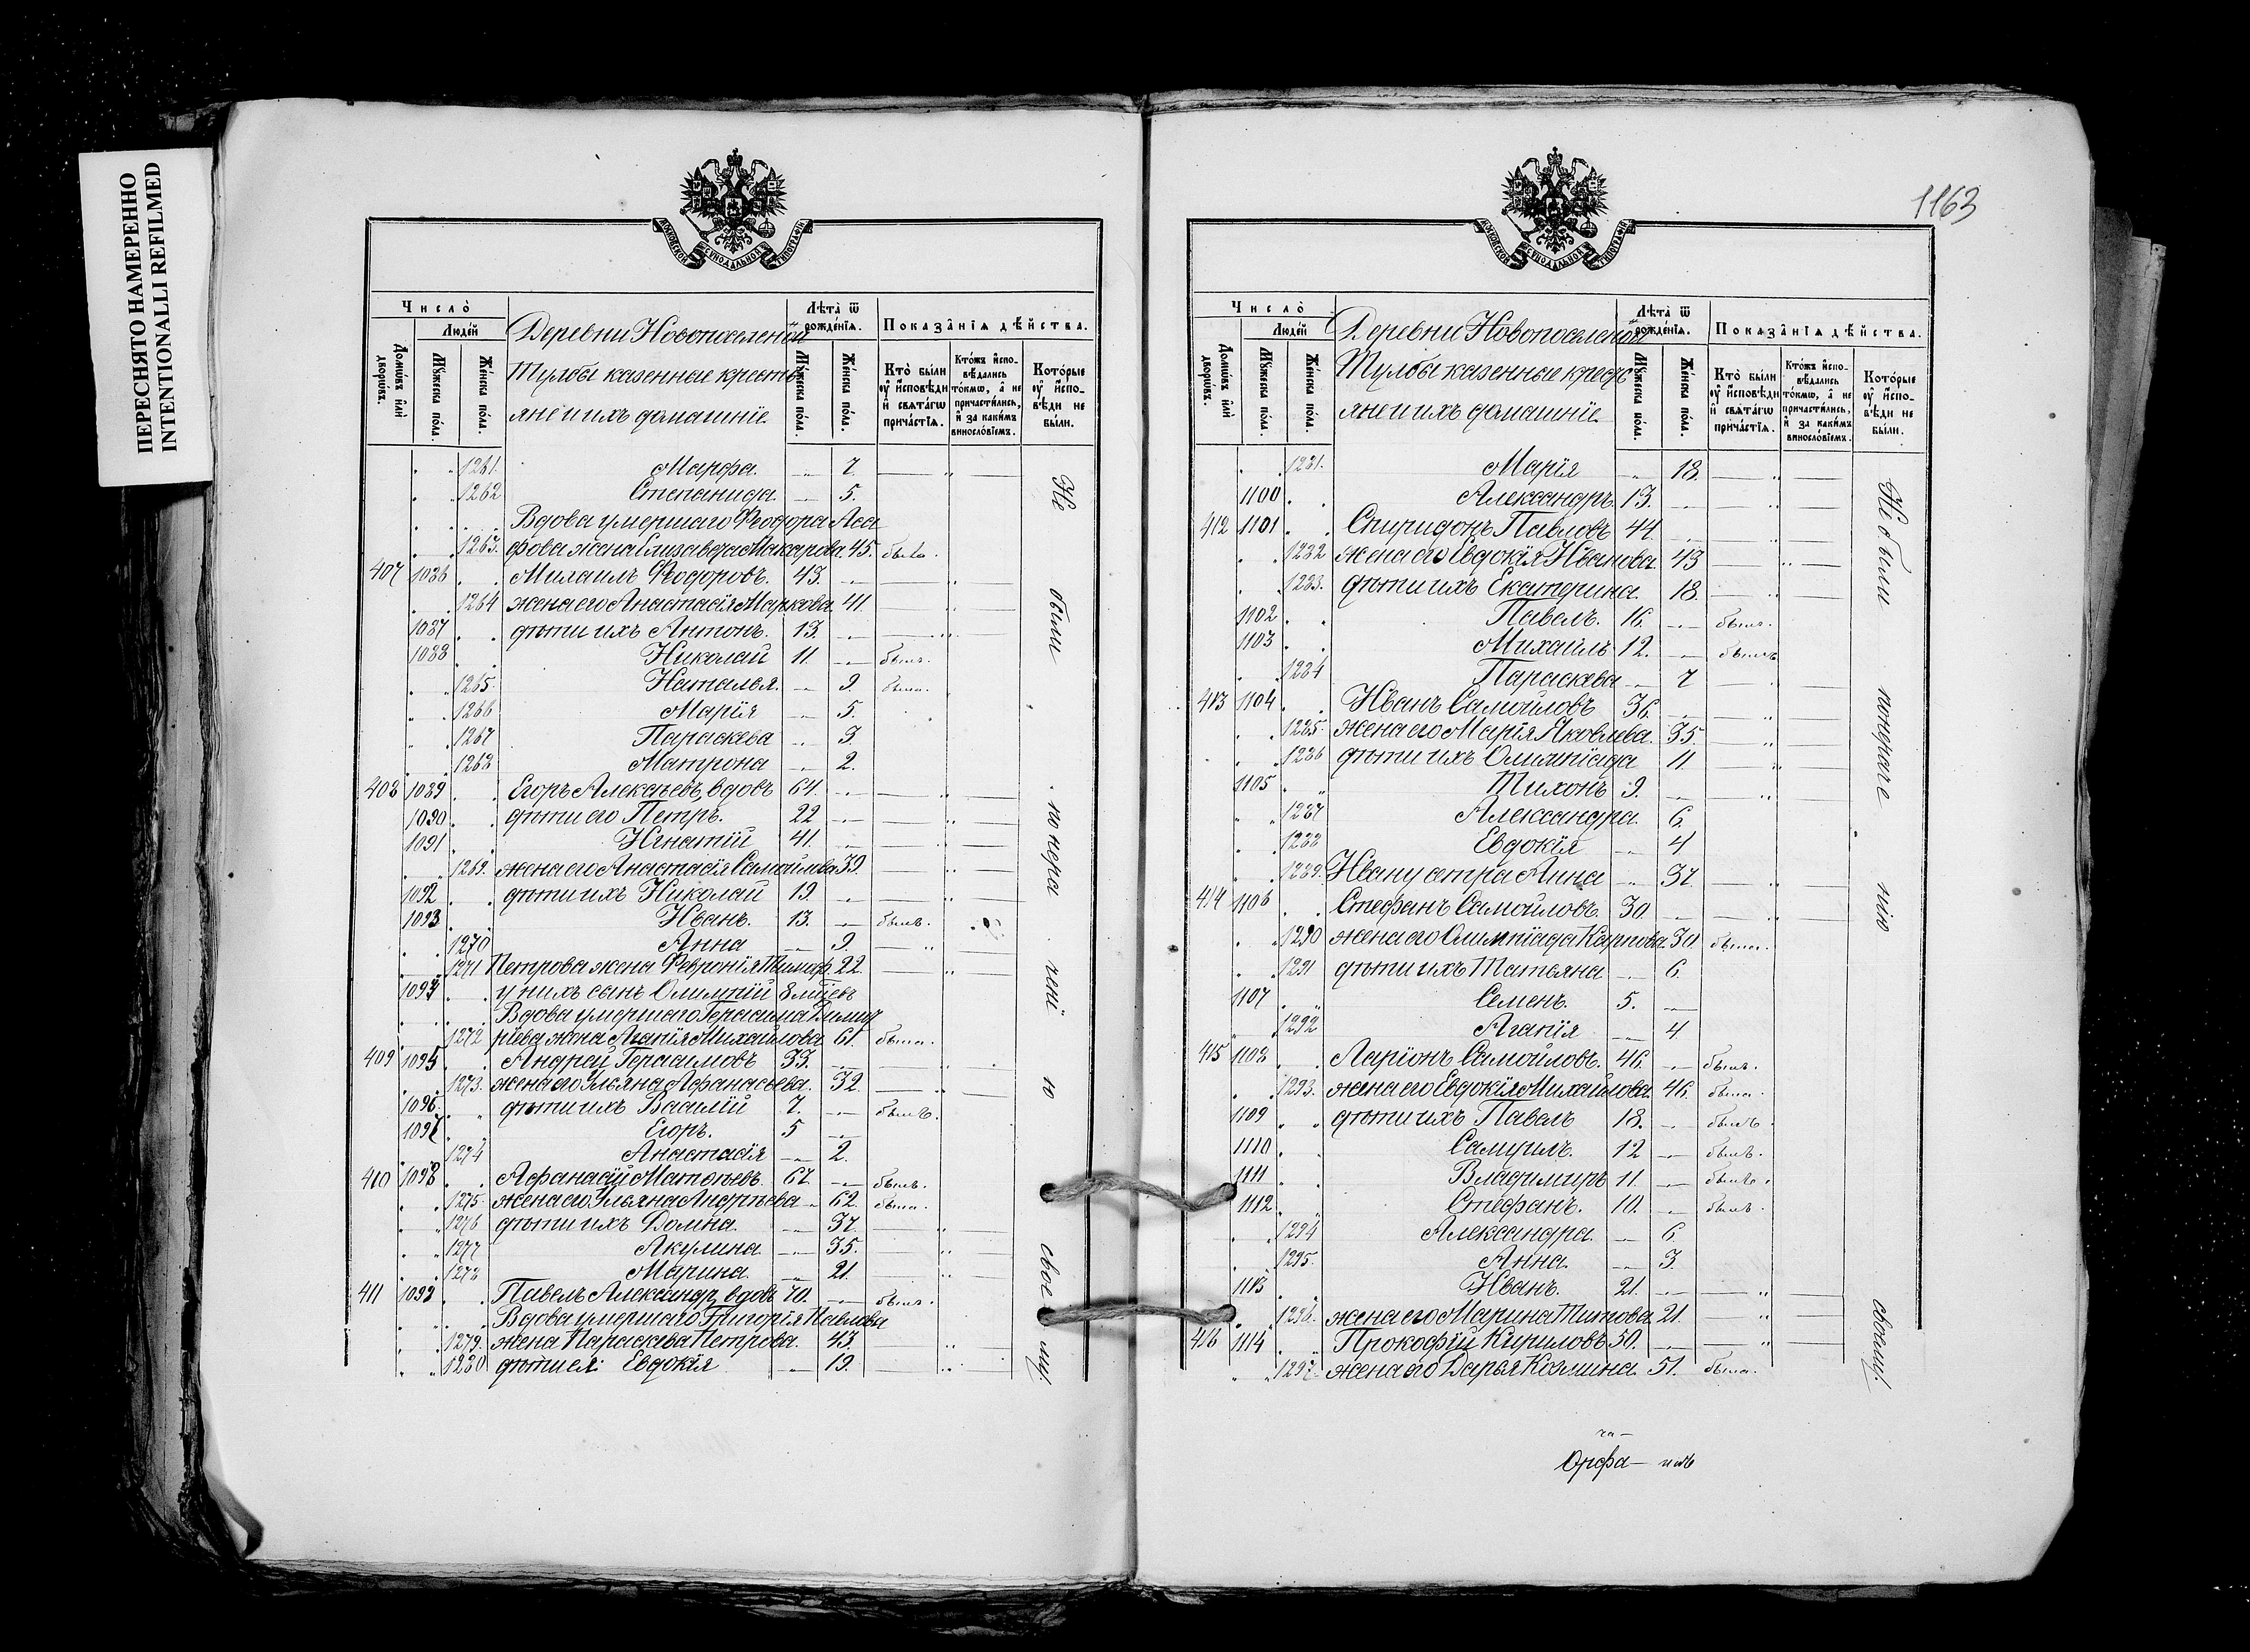 ПЕРЕСНЯТО НАМЕРЕННО
INTENTIONALLI REFILMED
МОСКОВСКОЙ СѴНОДАЛЬНОЙ ТИПОГРАФІИ
Число̀
Людей
Домѡвъ илѝ дворѡвъ.
Мꙋжеска пола.
Женска пола.
Деревни Новопоселеной
Тулбы казенные кресть
яне и ихъ домашніе.
Лѣта̀ ѿ рожденїѧ.
Мꙋжеска пола.
Женска пола.
Показанїѧ дѣйства.
Кто̀ были ᲂу҆ и҆сповѣди и҆ свѧтагѡ причастїѧ.
Ктожъ и҆сповѣдались токмѡ, а҆ не причастились, и҆ за какимъ винословїемъ.
Которые ᲂу҆ и҆сповѣди не были.
1281. Марфа. 7.
1262 Степанида. 5.
Вдова умершаго Ѳеодора Аса
1263. фова жена Елизавета Макарова. 45. была.
407 1086 Михаилъ Ѳеодоровъ. 43.
1264 жена его Анастасія Маркова. 41
1087 дѣти ихъ Антонъ. 13.
1088 Николай 11. былъ.
1265. Наталья. 9. была.
1266 Марія 5.
1267 Параскева 3.
1268 Матрона 2.
408 1089 Егоръ Алексѣевъ, вдовъ 64.
1090 дѣти его Петръ. 22
1091 Игнатій 41.
1269. жена его Анастасія Самойлова 39.
1092 дѣти ихъ Николай 19.
1093 Иванъ. 13. былъ.
1270 Анна 9.
1271 Петрова жена Февронія Тимоф. 22.
1094 у нихъ сынъ Олимпій 8 мѣсяцевъ
Вдова умершаго Герасима Димит
1272 ріева жена Агапія Михайлова 61. была.
409 1095 Андрей Герасимовъ 33.
1273. жена его Ульяна Афанасьева. 32.
1096. дѣти ихъ Василій 7. былъ.
1097 Егоръ. 5
1274 Анастасія 2.
410 1098 Афанасій Матвѣевъ. 67. былъ.
1275. жена его Ульяна Андреѣева 62. была.
1276 дѣти ихъ Домна. 37.
1277 Акулина 35.
1278 Марина. 21.
411 1099 Павелъ Александр, вдовъ 70. былъ.
Вдова умершаго Григорія Павлова
1279. жена Параскева Петрова. 43.
1280 дѣти ея: Евдокія 19.
Не были по нерадѣнію своему.
1163
МОСКОВСКОЙ СѴНОДАЛЬНОЙ ТИПОГРАФІИ
Число̀
Людей
Домѡвъ илѝ дворѡвъ.
Мꙋжеска пола.
Женска пола.
Деревни Новопоселеной
Тулбы казенные кресть
яне и ихъ домашніе.
Лѣта̀ ѿ рожденїѧ.
Мꙋжеска пола.
Женска пола.
Показанїѧ дѣйства.
Кто̀ были ᲂу҆ и҆сповѣди и҆ свѧтагѡ причастїѧ.
Ктожъ и҆сповѣдались токмѡ, а҆ не причастились, и҆ за какимъ винословїемъ.
Которые ᲂу҆ и҆сповѣди не были.
1281. Марія 18.
1100 Александръ. 13.
412 1101 Спиридонъ Павловъ 44.
1282 жена его Евдокія Иванова. 43
1283. дѣти ихъ Екатерина. 18.
1102 Павелъ. 16. былъ.
1103 Михаилъ 12. былъ
1284 Параскева 7
413 1104 Иванъ Самойловъ 36.
1285. жена его Марія Яковлева. 35.
1286 дѣти ихъ Олимпіада 11.
1105 Тихонъ 9.
1287 Александра. 6.
1288 Евдокія 4
1289. Ивану сестра Анна 37.
414 1106 Стефанъ Самойловъ. 30.
1290 жена его Олимпіада Карпова. 30 была.
1291 дѣти ихъ Татьяна 6.
1107 Семенъ. 5.
1292 Агапія 4
415 1108 Ларіонъ Самойловъ. 46. былъ.
1293. жена его Евдокія Михайлова. 46. была.
1109 дѣти ихъ Павелъ 18. былъ.
1110 Самуилъ. 12 былъ.
1111 Владимиръ 11. былъ.
1112 Стефанъ. 10. былъ.
1294 Александра. 6
1295. Анна. 3.
1113 Иванъ. 21.
1296. жена его Марина Титова. 21.
416 1114 Прокофій Кириловъ 50.
1297. жена его Дарья Козмина. 51. была.
Не были по нерадѣнію своему.